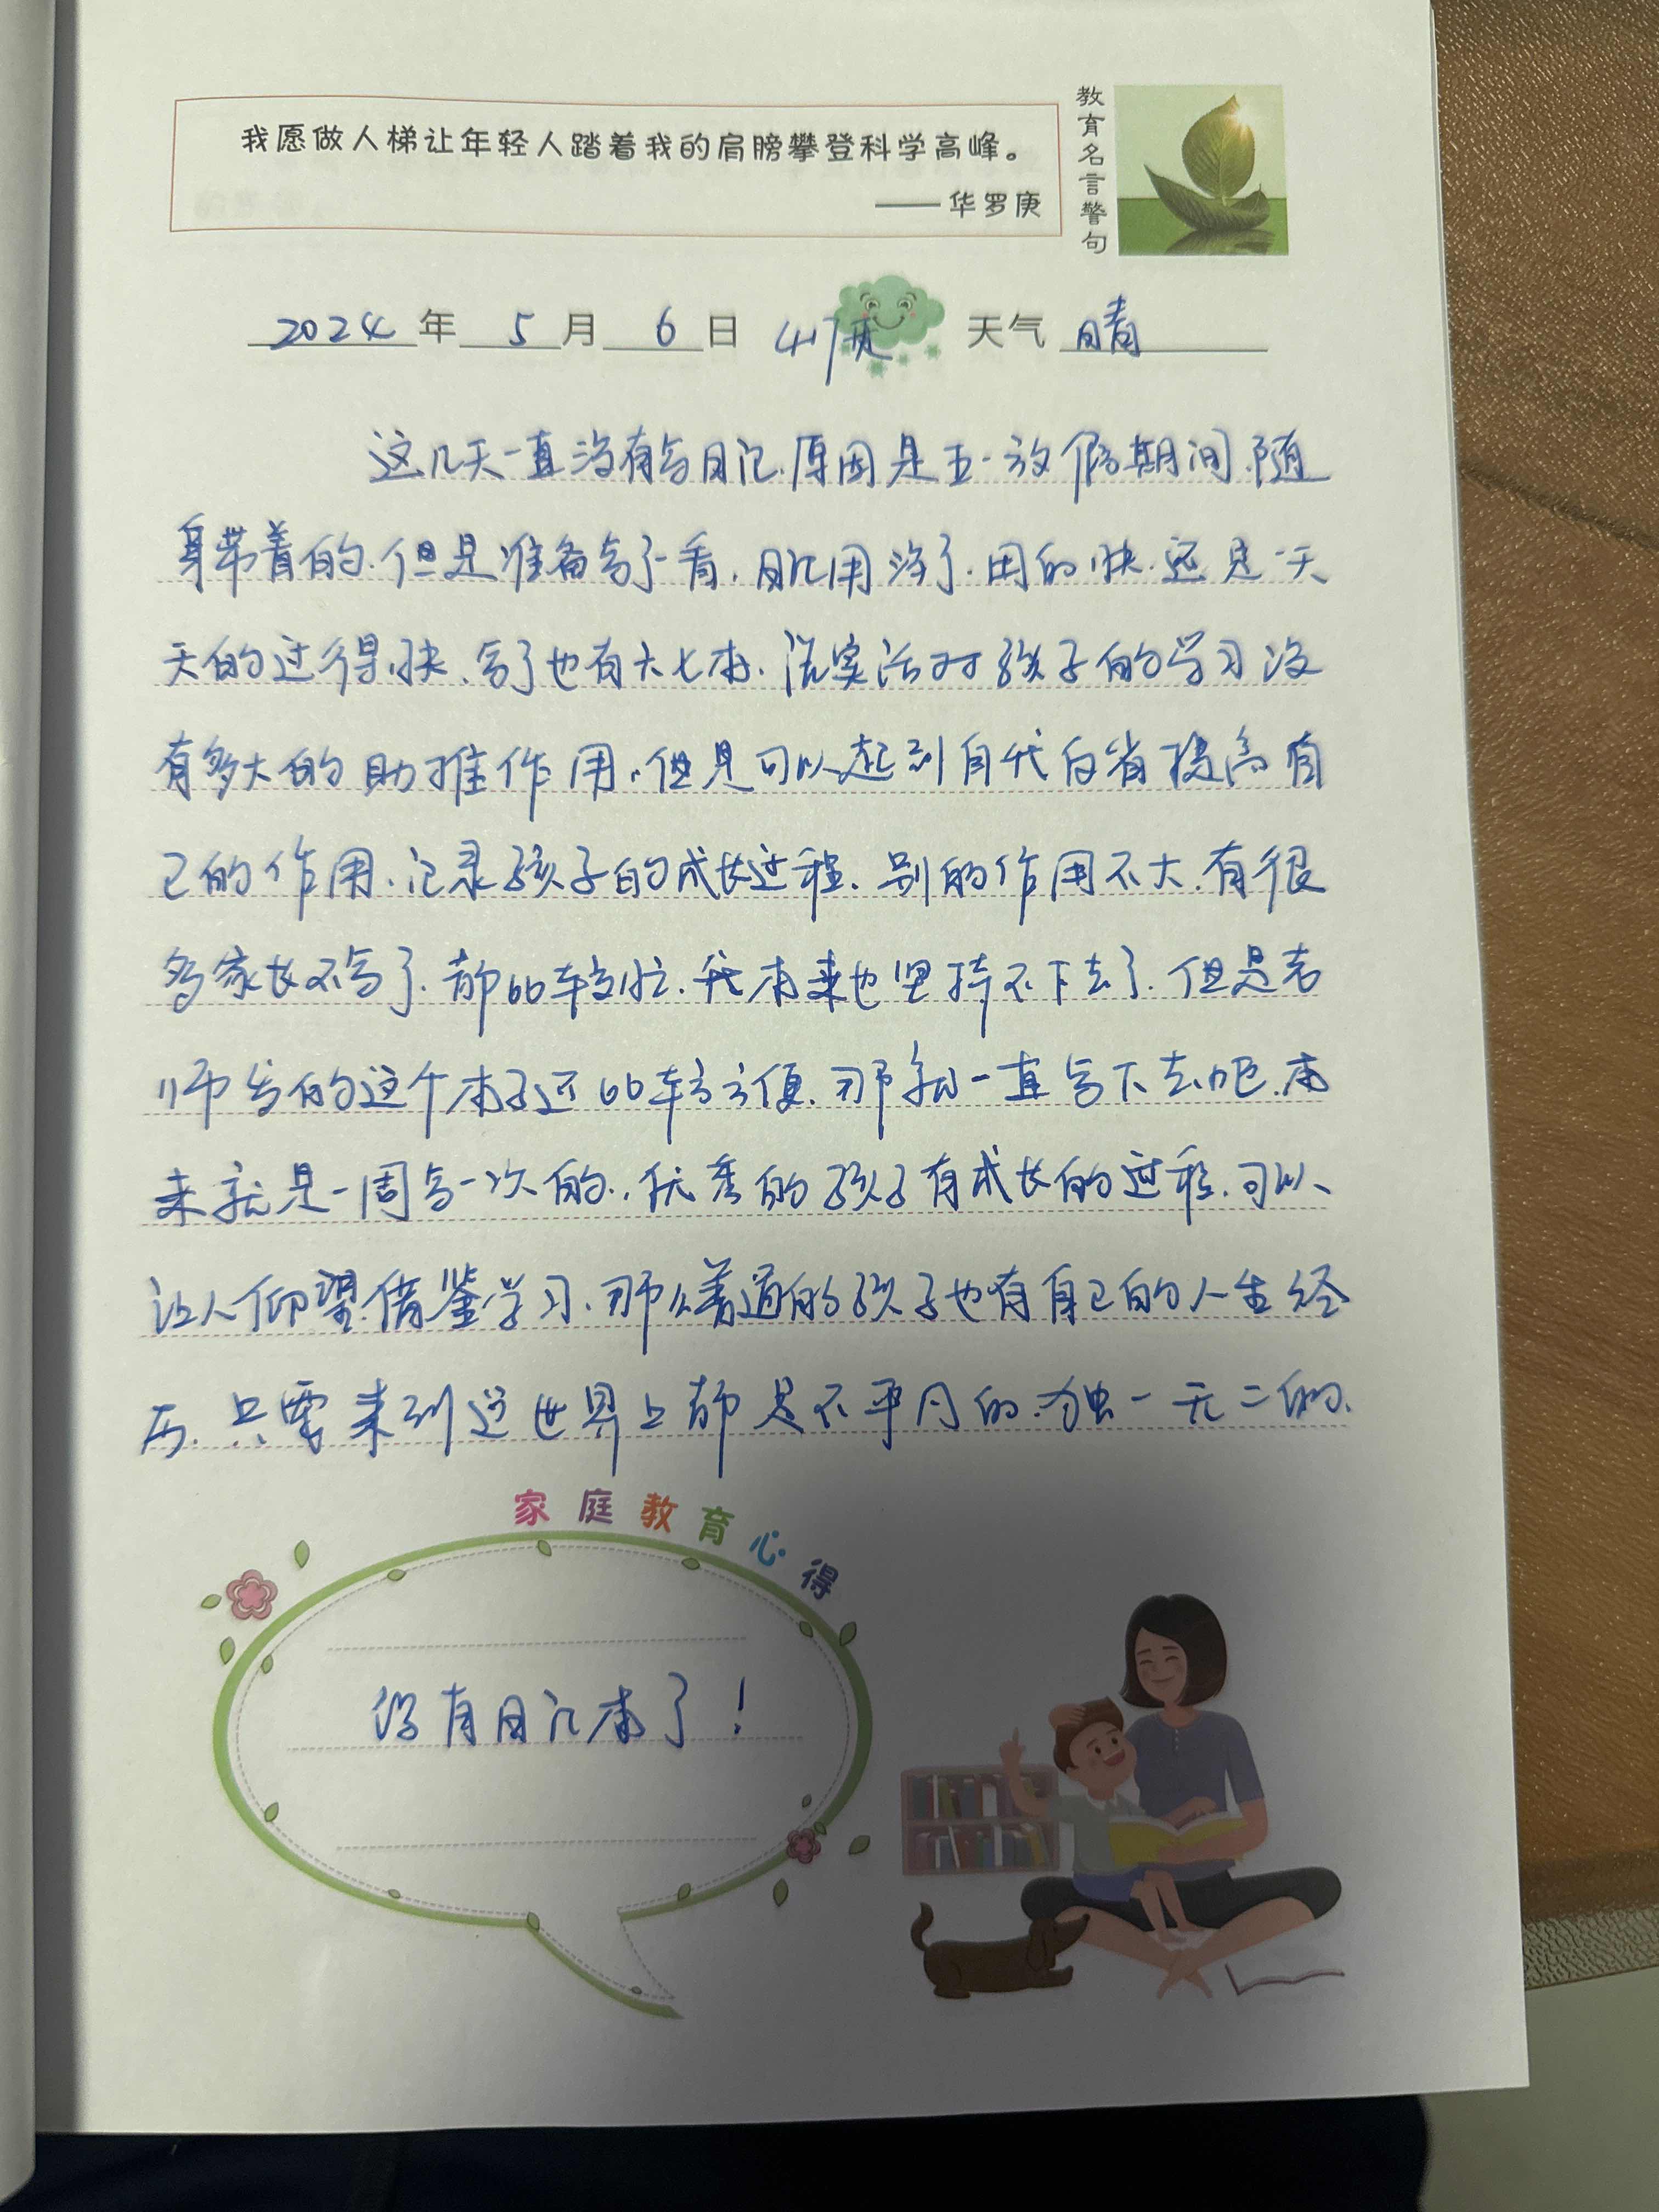 我愿做人梯让年轻人踏着我的肩膀攀登科学高峰。
——华罗庚
教育名言警句
2024年 5月 6日 417页 天气 晴
这几天一直没有写日记.原因是五一放假期间.随
身带着的.但是准备写了一看.日记用净了.用的快.还是一天
天的过得快.写了也有六七本.说实话对孩子的学习没
有多大的助推作用.但是可以起到自我自省提高自
己的作用.记录孩子的成长过程.别的作用不大.有很
多家长不写了.都比较忙.我本来也坚持不下去了.但是老
师发的这个本子还比较方便.那就一直写下去吧.本
来就是一周写一次的.优秀的孩子有成长的过程.可以
让人仰望借鉴学习.那么普通的孩子也有自己的人生经
历.只要来到这世界上都是不平凡的.独一无二的.
家庭教育心得
你有日记本了！